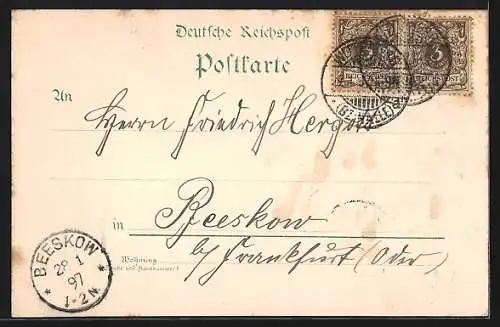 Deutsche Reichspost
Postkarte
3
3
REICHSPOST
REICHSPOST
(BZ. HALLE)
An
Herrn Friedrich
in Beeskow
Wohnung
b/ Frankfurt (Oder)
BEESKOW
28 1
97
1-2N.